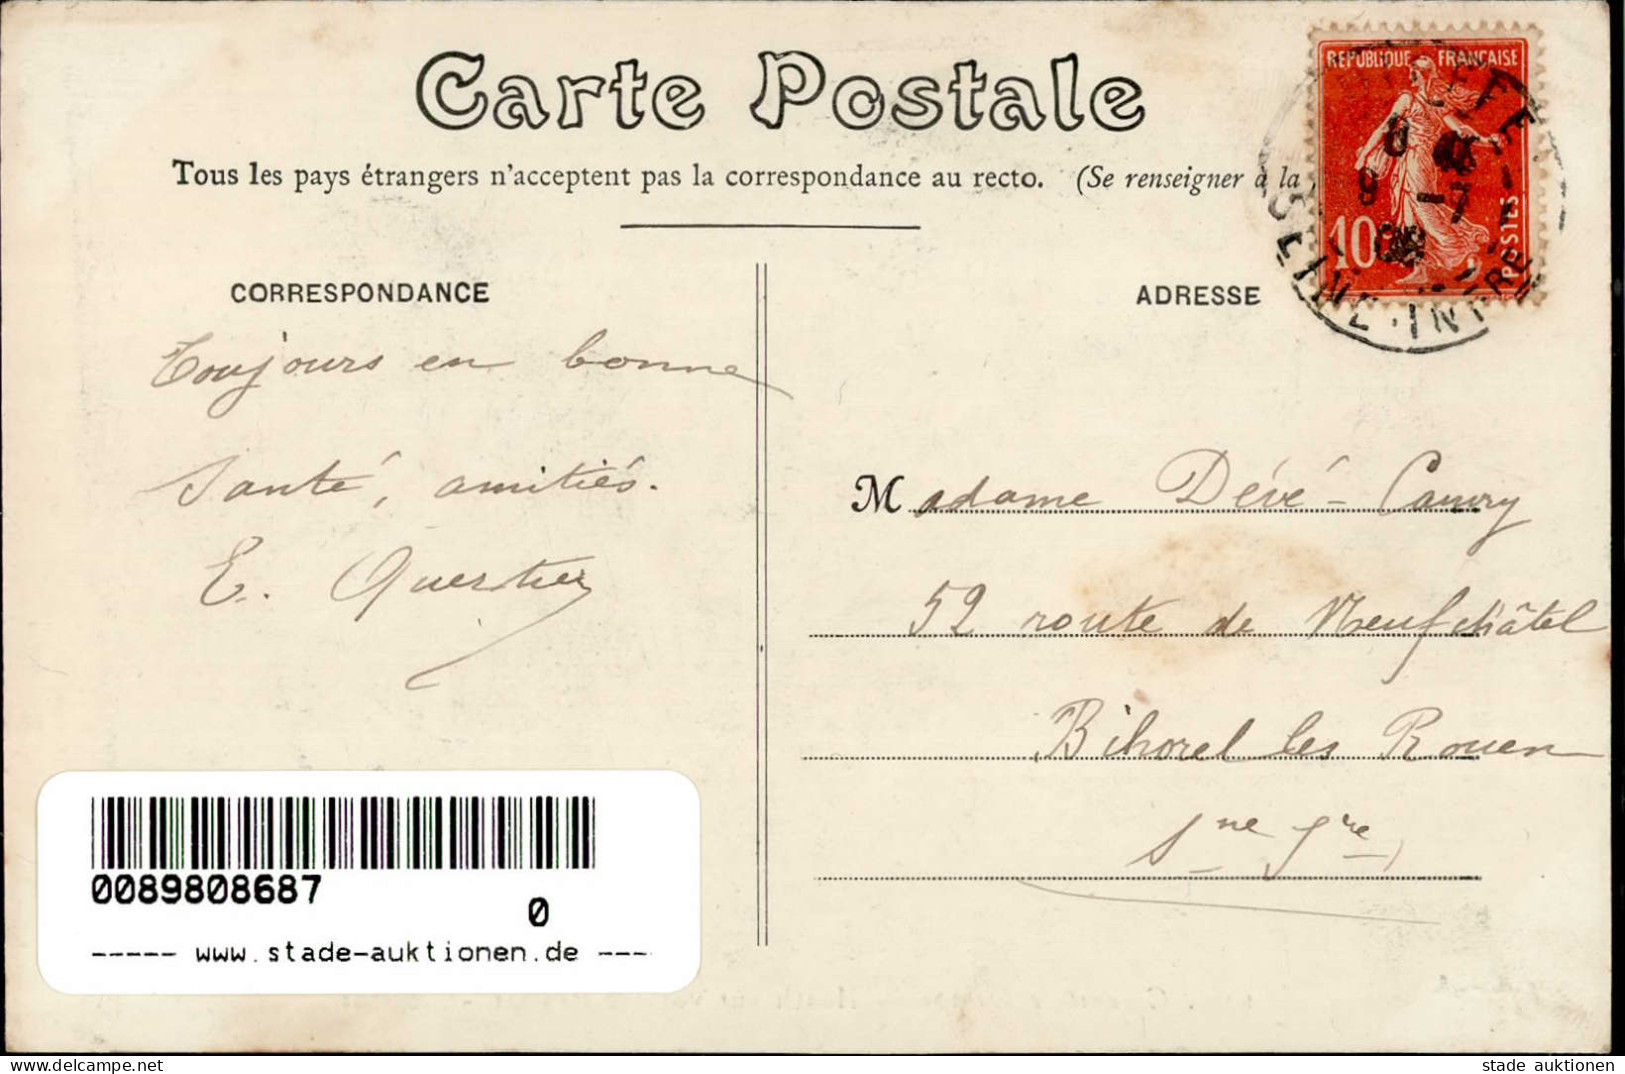 Carte Postale
Tous les pays étrangers n'acceptent pas la correspondance au recto. (Se renseigner à la
CORRESPONDANCE
ADRESSE
REPUBLIQUE FRANÇAISE
10c
POSTES
SEINE-INFRE
8
9 -7
08
Toujours en bonne
santé, amitiés.
E. Quertier
Madame Dévé-Cauvry
52 route de Neufchâtel
Bihorel les Rouen
Sne Ire
0089808687
0
----- www.stade-auktionen.de ----
www.delcampe.net
stade auktionen